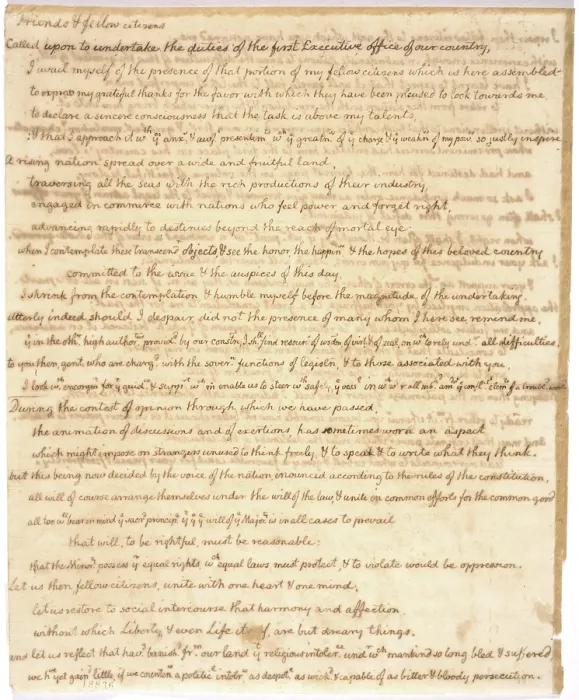 Friends & fellow citizens
Called upon to undertake the duties of the first Executive office of our country,
I avail myself of the presence of that portion of my fellow citizens which is here assembled
to express my grateful thanks for the favor with which they have been pleased to look towards me
to declare a sincere consciousness that the task is above my talents,
& that I approach it wth yt anxs & awfl presentimts wh ye greatnss of ye charge & ye weakns of my pow. so justly inspire
A rising nation spread over a wide and fruitful land
traversing all the seas with the rich productions of their industry,
engaged in commerce with nations who feel power and forget right,
advancing rapidly to destinies beyond the reach of mortal eye
when I contemplate these transcendt objects & see the honor, the happinss & the hopes of this beloved country
committed to the issue & the auspices of this day.
I shrink from the contemplation & humble myself before the magnitude of the undertaking.
utterly indeed should I despair, did not the presence of many whom I here see remind me,
yt in the othr high authors provid by our constn, I shl find resours of wisdm of virt & of zeal, on wh to rely undr all difficulties.
to you then, gent. who are chargd with the soverñ functions of legisln, & to those associated with you,
I look wth encoragmt for yt guidce & suppt wh m enable us to steer wth safety, ye vessl in wh w r all mbkd amst ye conflt elemts of a troubl. world
During the contest of opinion through which we have passed,
the animation of discussions and of exertions has sometimes worn an aspect
which might impose on strangers unused to think freely, & to speak & to write what they think.
but this being now decided by the voice of the nation, enounced according to the rules of the constitution,
all will of course arrange themselves under the will of the law, & unite in common efforts for the common good
all too wll bear in mind ys sacrd principl yt yo ye will of ye Majorty is in all cases to prevail
that will, to be rightful, must be reasonable:
that the Minorty possess yr equal rights, wh equal laws must protect, & to violate would be oppression.
Let us then fellow citizens, unite with one heart & one mind,
let us restore to social intercourse that harmony and affection
without which Liberty, & even Life itself, are but dreary things.
and let us reflect that havg banishd frm our land yt religious intolerce undr wh mankind so long bled & suffered
we hve yet gaind little, if we countence a politicl intolrce as despotc as wickd & capable of as bitter & bloody persecution.